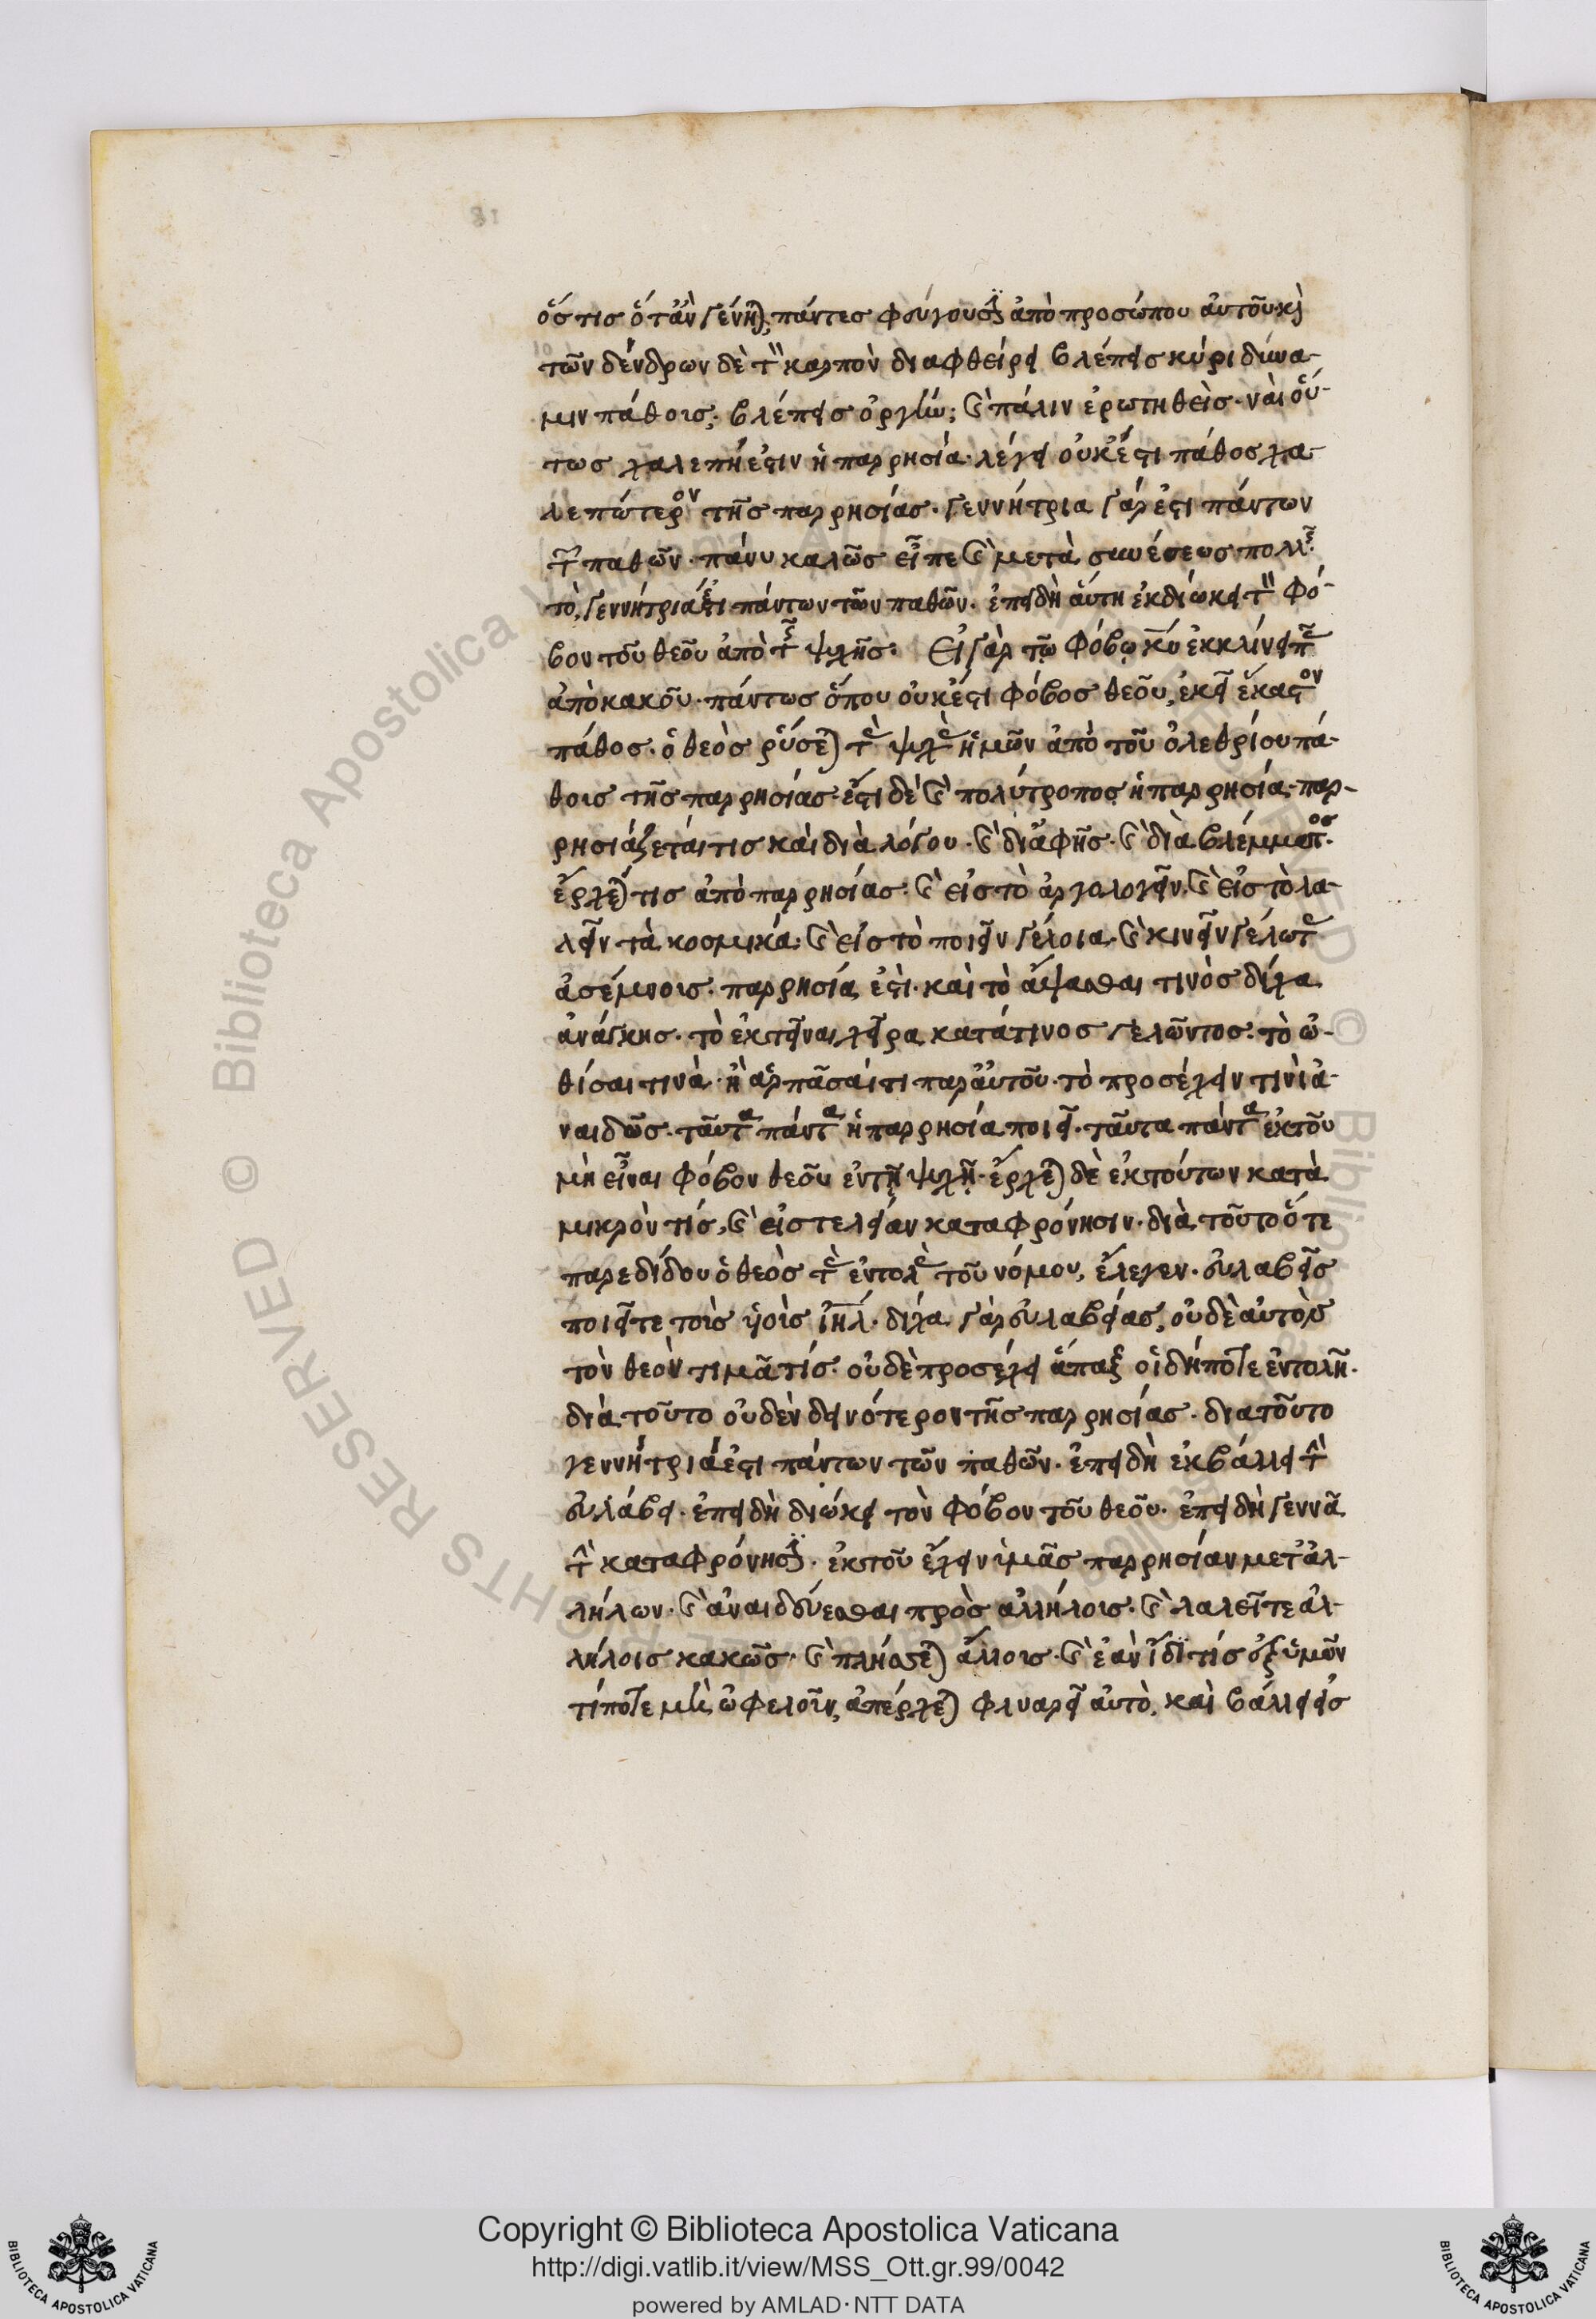 ὅστις ὅταν γένηται, πάντες φεύγουσιν ἀπὸ προσώπου αὐτοῦ· καὶ
τῶν δένδρων δὲ τὸν καρπὸν διαφθείρει βλέπεις κύρι δύνα-
μιν πάθους; βλέπεις ὀργὴν; καὶ πάλιν ἐρωτηθεὶς· ναὶ οὕ-
τως χαλεπή ἐστιν ἡ παρρησία· λέγει οὐκ ἔστι πάθος χα-
λεπώτερον τῆς παρρησίας· γεννήτρια γάρ ἐστι πάντων
τῶν παθῶν· πάνυ καλῶς εἶπε καὶ μετὰ συνέσεως πολλῆς·
τὸ, γεννήτριά ἐστι πάντων τῶν παθῶν· ἐπειδὴ αὕτη ἐκδιώκει τὸν φό-
βον τοῦ θεοῦ ἀπὸ τῆς ψυχῆς· Εἰ γὰρ τῷ φόβῳ κυ ἐκκλίνει πᾶς
ἀπὸ κακοῦ· πάντως ὅπου οὐκ ἔστι φόβος θεοῦ, ἐκεῖ ἕκαστον
πάθος· ὁ θεὸς ῥύσεται τὰς ψυχὰς ἡμῶν ἀπὸ τοῦ ὀλεθρίου πά-
θους τῆς παρρησίας· ἔστι δὲ καὶ πολύτροπος ἡ παρρησία· παρ-
ρησιάζεται τις καὶ διὰ λόγου· καὶ δι ἀφῆς· καὶ διὰ βλέμματος·
ἔρχεται τις ἀπὸ παρρησίας· καὶ εἰς τὸ ἀργολογεῖν· καὶ εἰς τὸ λα-
λεῖν τὰ κοσμικά· καὶ εἰς τὸ ποιεῖν γέλοια· καὶ κινεῖν γέλωτας
ἀσέμνους· παρρησία ἐστὶ· καὶ τὸ ἅψασθαι τινὸς δίχα
ἀνάγκης· τὸ ἐκτεῖναι χεῖρα κατά τινος γελῶντος· τὸ ὠ-
θίσαι τινὰ· ἢ ἁρπᾶσαί τι παρ αὐτοῦ· τὸ προσέχειν τινὶ ἀ-
ναιδῶς· ταῦτα πάντα ἡ παρρησία ποιεῖ· ταῦτα πάντα ἐκ τοῦ
μὴ εἶναι φόβον θεοῦ ἐν τῇ ψυχῇ· ἔρχεται δὲ ἐκ τούτων κατὰ
μικρὸν τίς, καὶ εἰς τελείαν καταφρόνησιν· διὰ τοῦτο ὅτε
παρεδίδου ὁ θεὸς τὰς ἐντολὰς τοῦ νόμου, ἔλεγεν· εὐλαβεῖς
ποιεῖτε τοὺς ὑιοὺς ιηλ· δίχα γὰρ εὐλαβείας, οὐδὲ αὐτὸν
τὸν θεὸν τιμᾶ τίς· οὐδὲ προσέχει ἅπαξ οἱδήποτε ἐντολῆ·
διὰ τοῦτο οὐδὲν δεινότερον τῆς παρρησίας· διατοῦτο
γεννήτριά ἐστι πάντων τῶν παθῶν· ἐπειδὴ ἐκβάλλει τὴν
εὐλάβει· ἐπειδὴ διώκει τὸν φόβον τοῦ θεοῦ· ἐπειδὴ γεννᾶ
τὴν καταφρόνησιν· ἐκ τοῦ ἔχειν ὑμᾶς παρρησίαν μετ ἀλ-
λήλων· καὶ ἀναιδεύεσθαι πρὸς ἀλλήλους· καὶ λαλεῖτε ἀλ-
λήλοις κακῶς· καὶ πλήσσεται ἄλλους· καὶ ἐὰν ἴδῃ τίς ἐξ ὑμῶν
τίποτε μὴ ὠφελοῦν, ἀπέρχεται φλυαρεῖ αὐτὸ, καὶ βάλλει εἰς
Copyright © Biblioteca Apostolica Vaticana
http://digi.vatlib.it/view/MSS_Ott.gr.99/0042
powered by AMLAD·NTT DATA